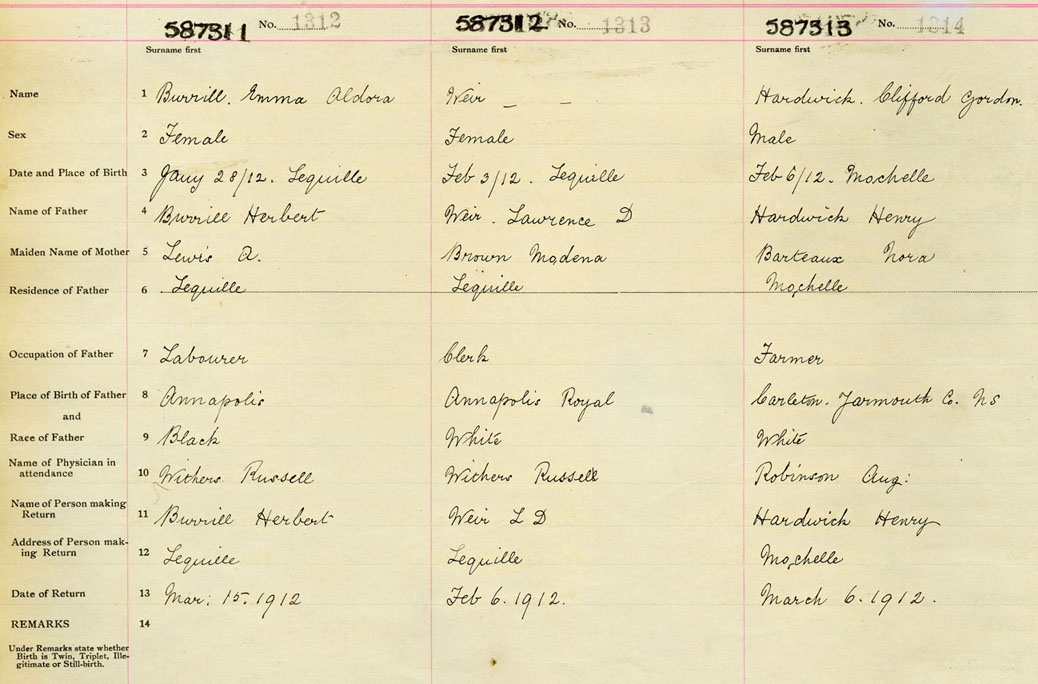 587311 No. 1312 587312 No. 1313 587313 No. 1314
Surname first Surname first Surname first
Name 1 Burrill. Emma Aldora Weir _ _ Hardwick. Clifford Gordon.
Sex 2 Female Female Male
Date and Place of Birth 3 Jany 28/12. Lequille Feb 3/12. Lequille Feb 6/12. Mochelle
Name of Father 4 Burrill Herbert Weir. Lawrence D Hardwick Henry
Maiden Name of Mother 5 Lewis A. Brown Modena Barteaux Nora
Residence of Father 6 Lequille Lequille Mochelle
Occupation of Father 7 Labourer Clerk Farmer
Place of Birth of Father 8 Annapolis Annapolis Royal Carleton. Yarmouth Co. NS
and
Race of Father 9 Black White White
Name of Physician in
attendance 10 Withers Russell Withers Russell Robinson Aug:
Name of Person making
Return 11 Burrill Herbert Weir L D Hardwick Henry
Address of Person mak-
ing Return 12 Lequille Lequille Mochelle
Date of Return 13 Mar: 15. 1912 Feb 6. 1912. March 6. 1912.
REMARKS 14
Under Remarks state whether
Birth is Twin, Triplet, Ille-
gitimate or Still-birth.